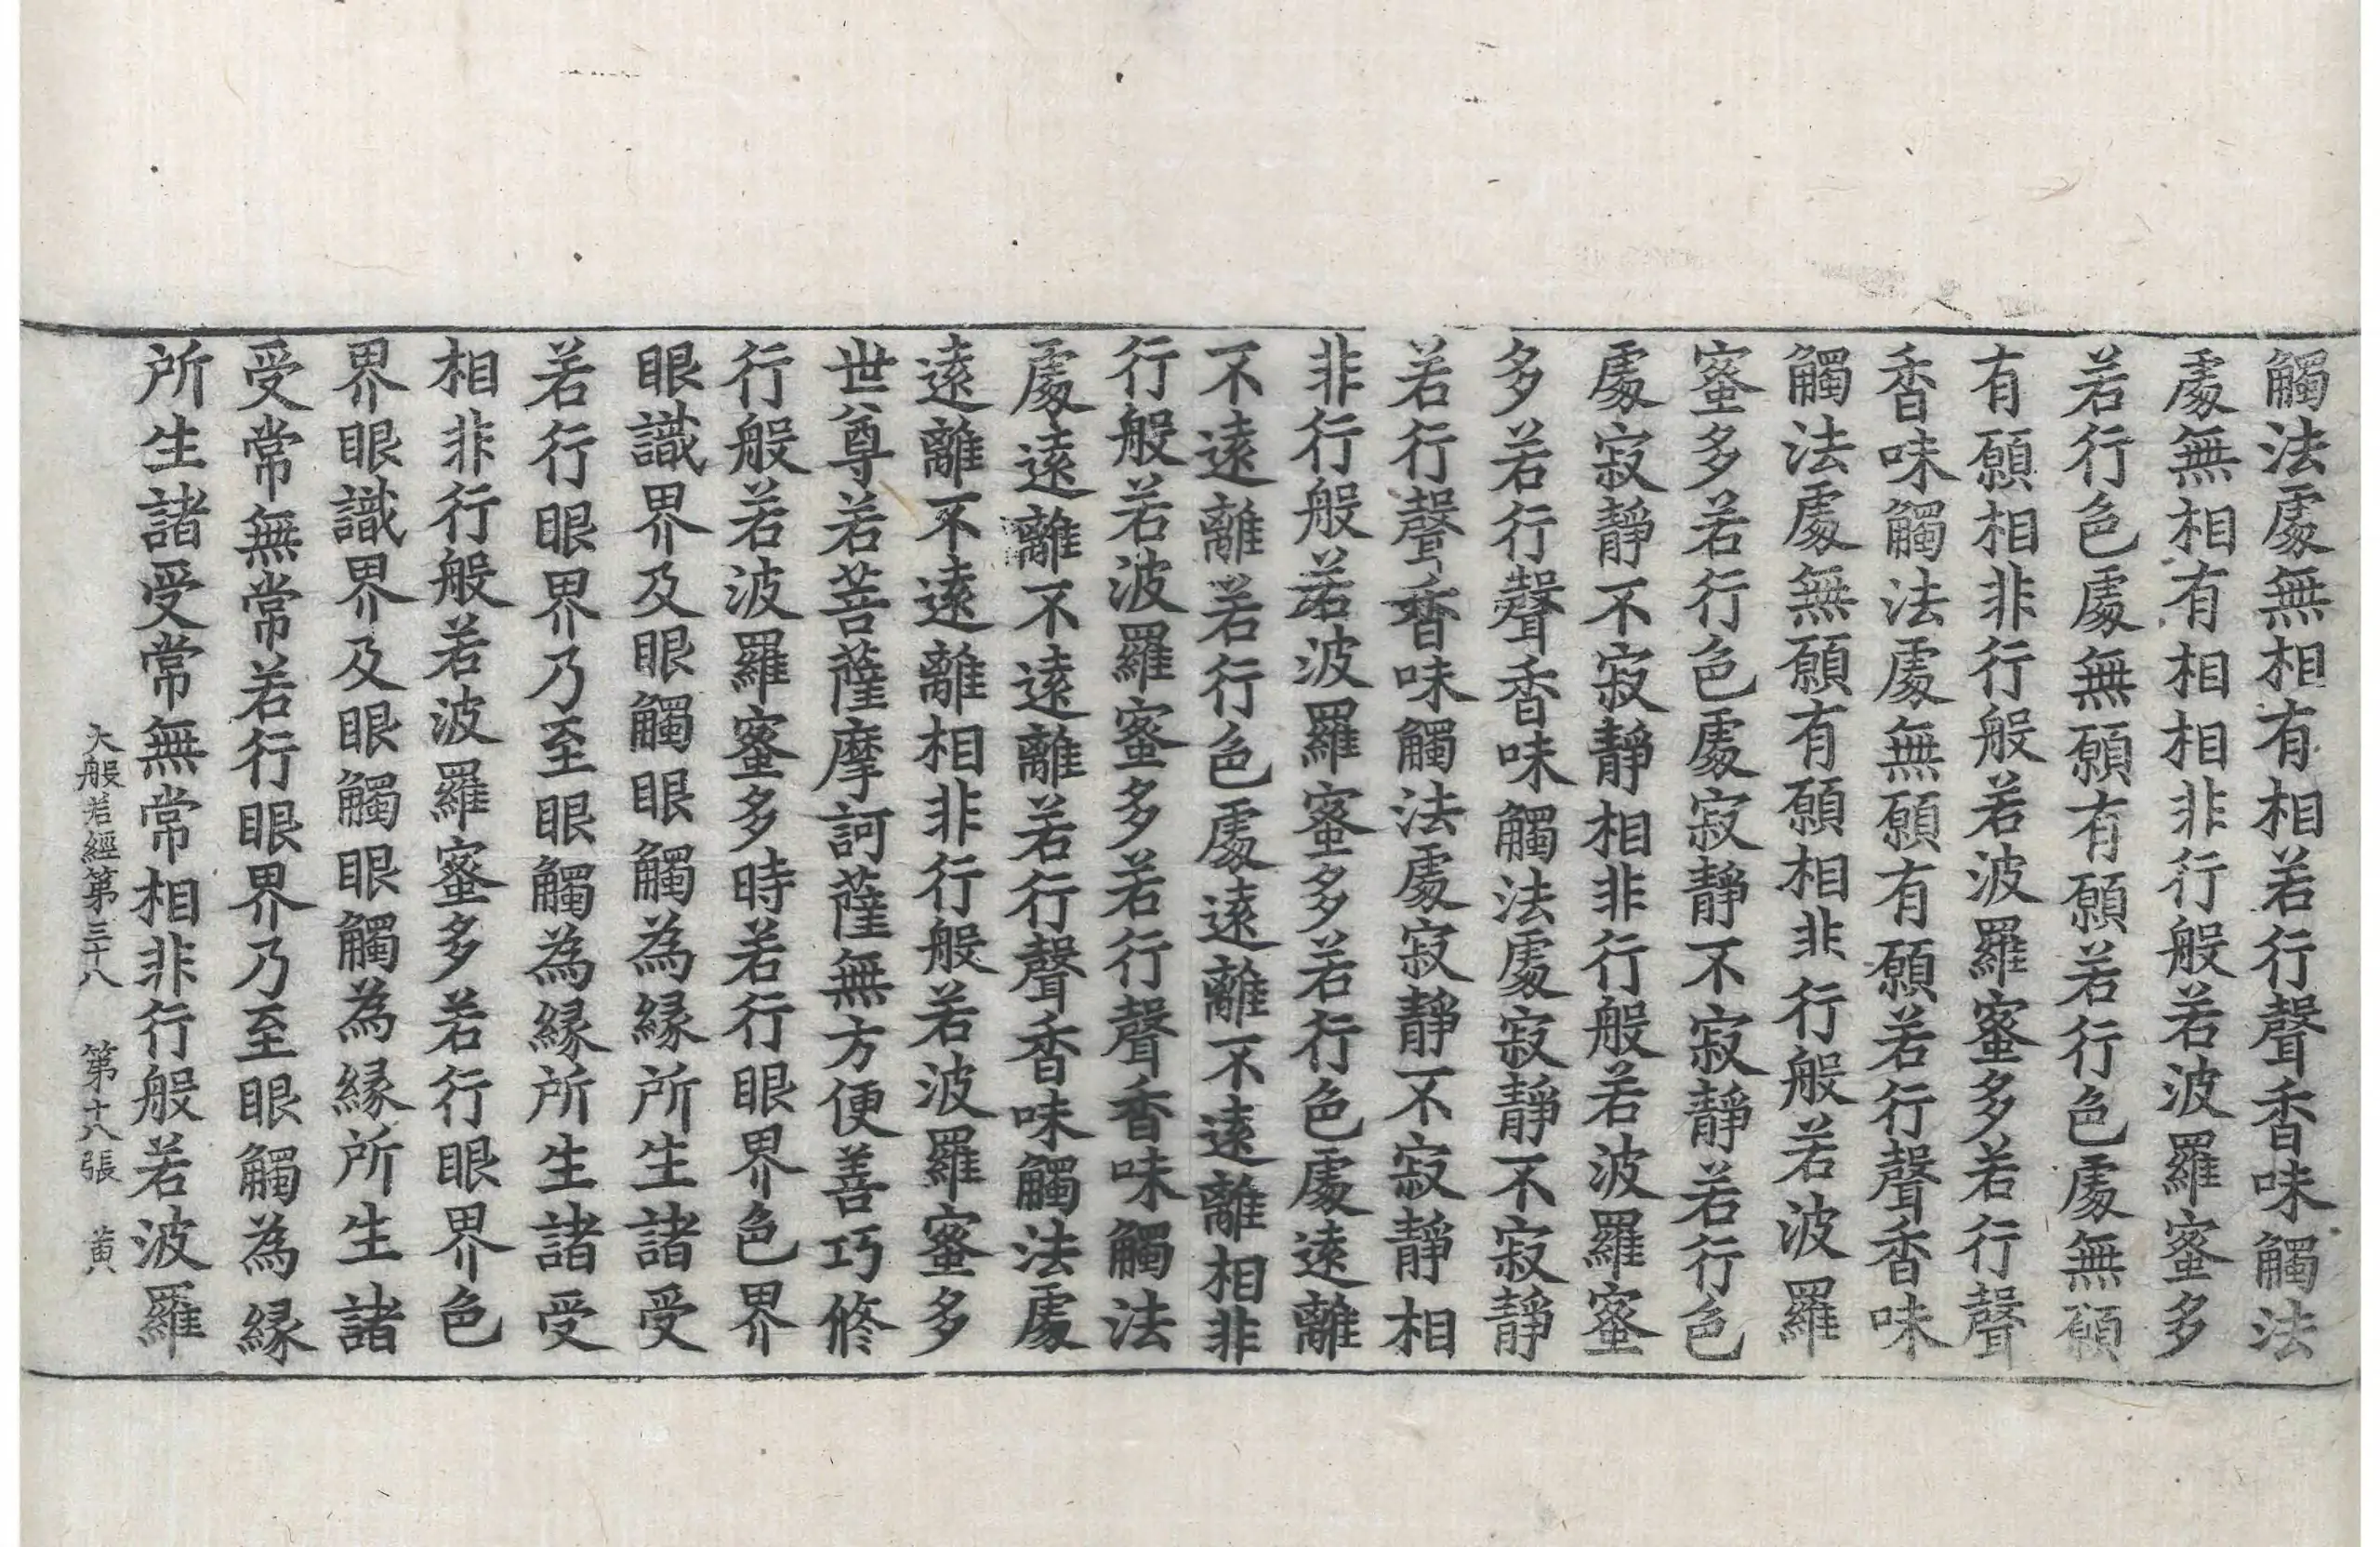 觸法處無相有相若行聲香味觸法
處無相有相相非行般若波羅蜜多
若行色處無願有願若行色處無願
有願相非行般若波羅蜜多若行聲
香味觸法處無願有願若行聲香味
觸法處無願有願相非行般若波羅
蜜多若行色處寂靜不寂靜若行色
處寂靜不寂靜相非行般若波羅蜜
多若行聲香味觸法處寂靜不寂靜
若行聲香味觸法處寂靜不寂靜相
非行般若波羅蜜多若行色處遠離
不遠離若行色處遠離不遠離相非
行般若波羅蜜多若行聲香味觸法
處遠離不遠離若行聲香味觸法處
遠離不遠離相非行般若波羅蜜多
世尊若菩薩摩訶薩無方便善巧修
行般若波羅蜜多時若行眼界色界
眼識界及眼觸眼觸為緣所生諸受
若行眼界乃至眼觸為緣所生諸受
相非行般若波羅蜜多若行眼界色
界眼識界及眼觸眼觸為緣所生諸
受常無常若行眼界乃至眼觸為緣
所生諸受常無常相非行般若波羅
大般若經第三十八 第十八張 黄